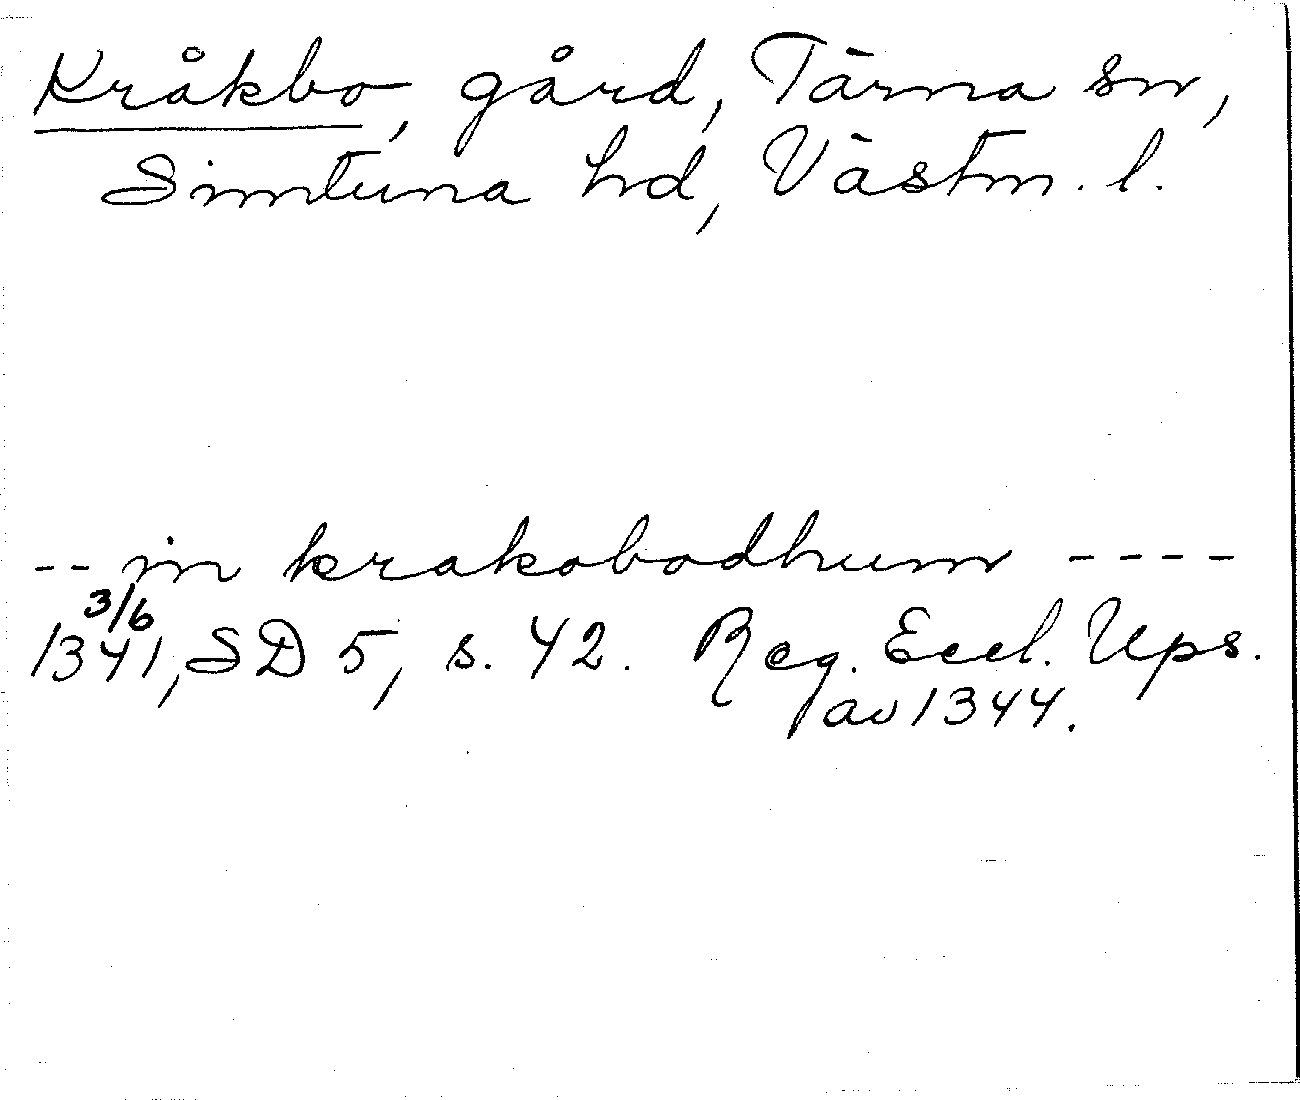 Kråkbo, gård, Tärna sn,
Simtuna hd, Västm. l.
-- in krakobodhum ----
3/6
1341, SD 5, s. 42. Reg. Eccl. Ups.
av 1344.